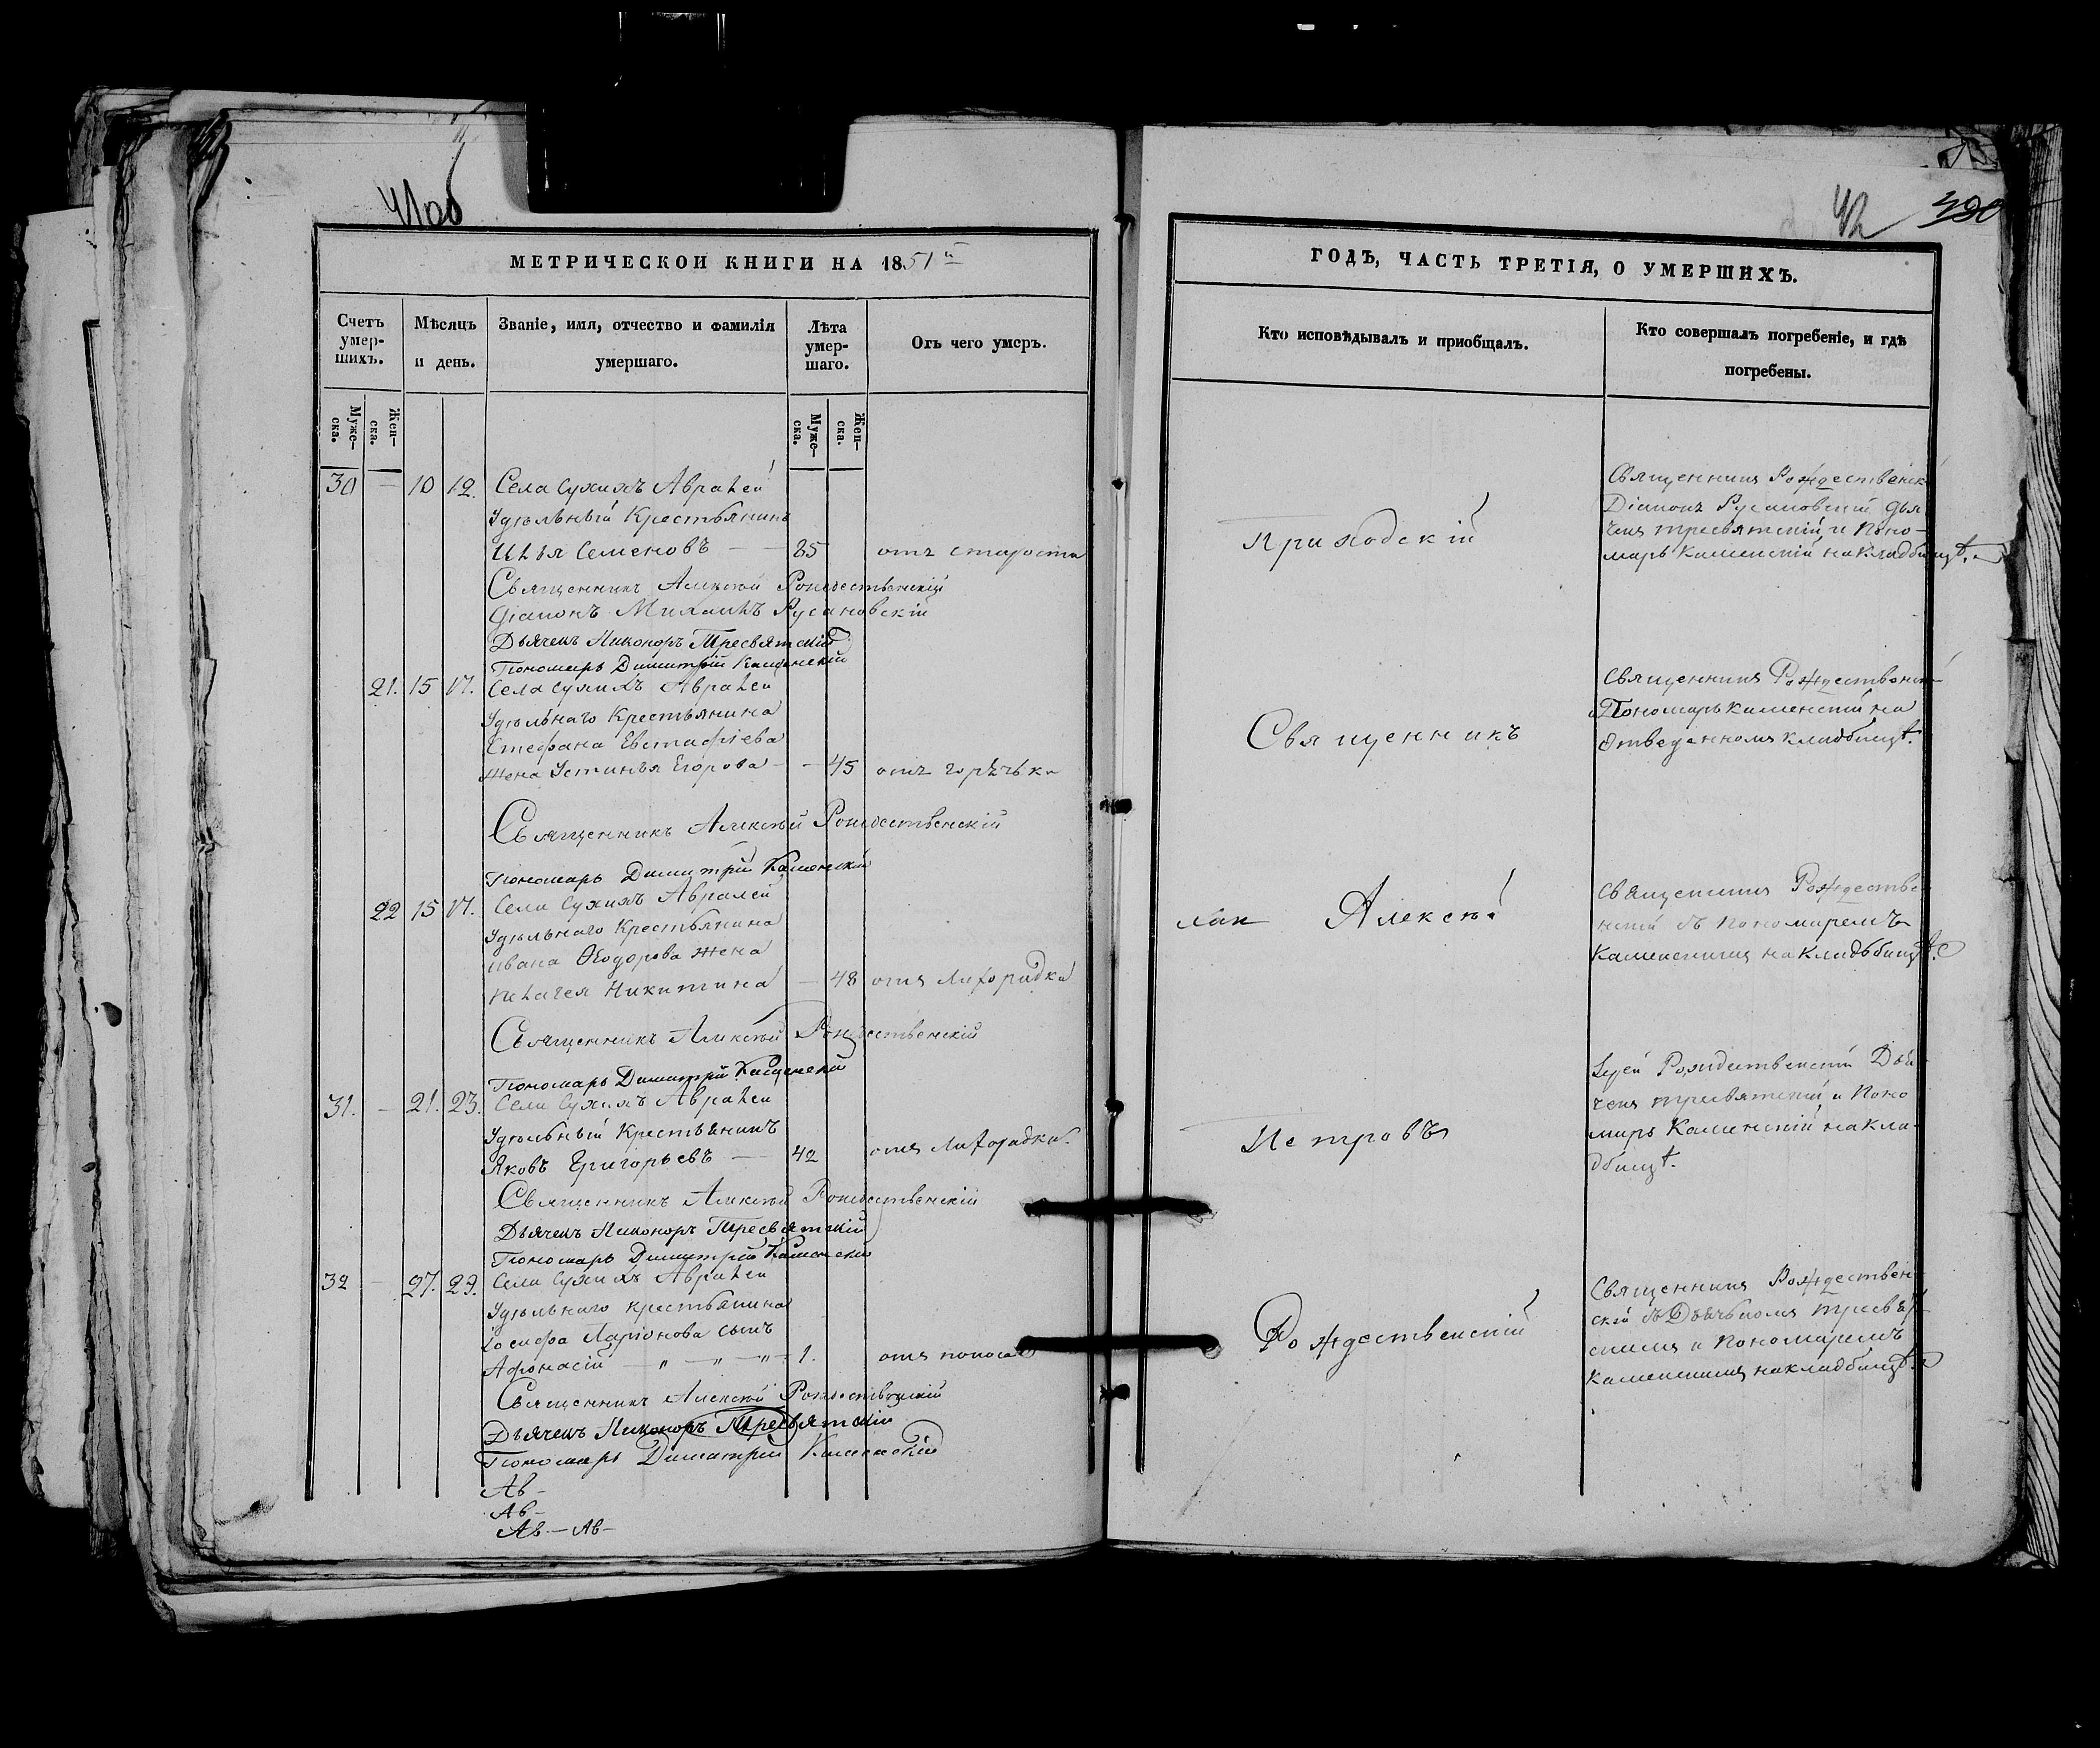 41об
МЕТРИЧЕСКОЙ КНИГИ НА 1851й
Счетъ умер-шихъ.
Мѣсяцъ и день.
Званіе, имя, отчество и фамилія умершаго.
Лѣта умер-шаго.
Отъ чего умеръ.
Муже-ска.
Жен-ска.
Муже-ска.
Жен-ска.
30 — 10 12. Села Сухихъ Авралей
Удѣльный Крестьянинъ
Илья Семеновъ — 85 отъ старости
Священникъ Алексѣй Рождественскій
Діаконъ Михаилъ Русановскій
Дьячекъ Никоноръ Тресвятскій
Пономарь Димитрій Каменскій
21. 15 17. Села Сухихъ Авралей
Удѣльнаго Крестьянина
Стефана Евстафіева
жена Устинья Егорова — 45 отъ горячьки
Священникъ Алексѣй Рождественскій
Пономарь Димитрій Каменскій
22 15 17. Села Сухихъ Авралей
Удѣльнаго Крестьянина
Ивана Ѳеодорова жена
Пелагея Никитина — 48 отъ Лихорадки
Священникъ Алексѣй Рождественскій
Пономарь Димитрій Каменскій
31. — 21. 23. Села Сухихъ Авралей
Удѣльный Крестьянинъ
Яковъ Григорьевъ — 42 отъ Лихорадки.
Священникъ Алексѣй Рождественскій
Дьячекъ Никоноръ Тресвятскій
Пономарь Димитрій Каменскій
32 — 27. 29. Села Сухихъ Авралей
Удѣльнаго крестьянина
Іосифа Ларіонова сынъ
Афонасій — „ — „ — „ 1. отъ поноса
Священникъ Алексѣй Рождественскій
Дьячекъ Никоноръ Тресвятскій
Пономарь Димитрій Каменскій
Ав-
Ав-
Ав-Ав-
42
ГОДЪ, ЧАСТЬ ТРЕТІЯ, О УМЕРШИХЪ.
Кто исповѣдывалъ и приобщалъ.
Кто совершалъ погребеніе, и гдѣ погребены.
Приходскій
Священникъ
Алексѣй
Петровъ
Рождественскій
Священникъ Рождественск
Діаконъ Русановскій дья
чекъ тресвятскій и Поно-
марь Каменскій на Кладбищѣ.
Священникъ Рождественскій
Пономарь Каменскій на
Отведенномъ кладбищѣ.
Священникъ Рождествен
нскій съ Пономаремъ
Каменскимъ на Кладьбищѣ.
Іерей Рождественскій Дья
чекъ тресвятскій и Поно
марь Каменскій на кла-
дбищѣ.
Священникъ Рождествен
скій съ Дьячькомъ тресвят
скимъ и Пономаремъ
Каменскимъ на кладбищѣ.